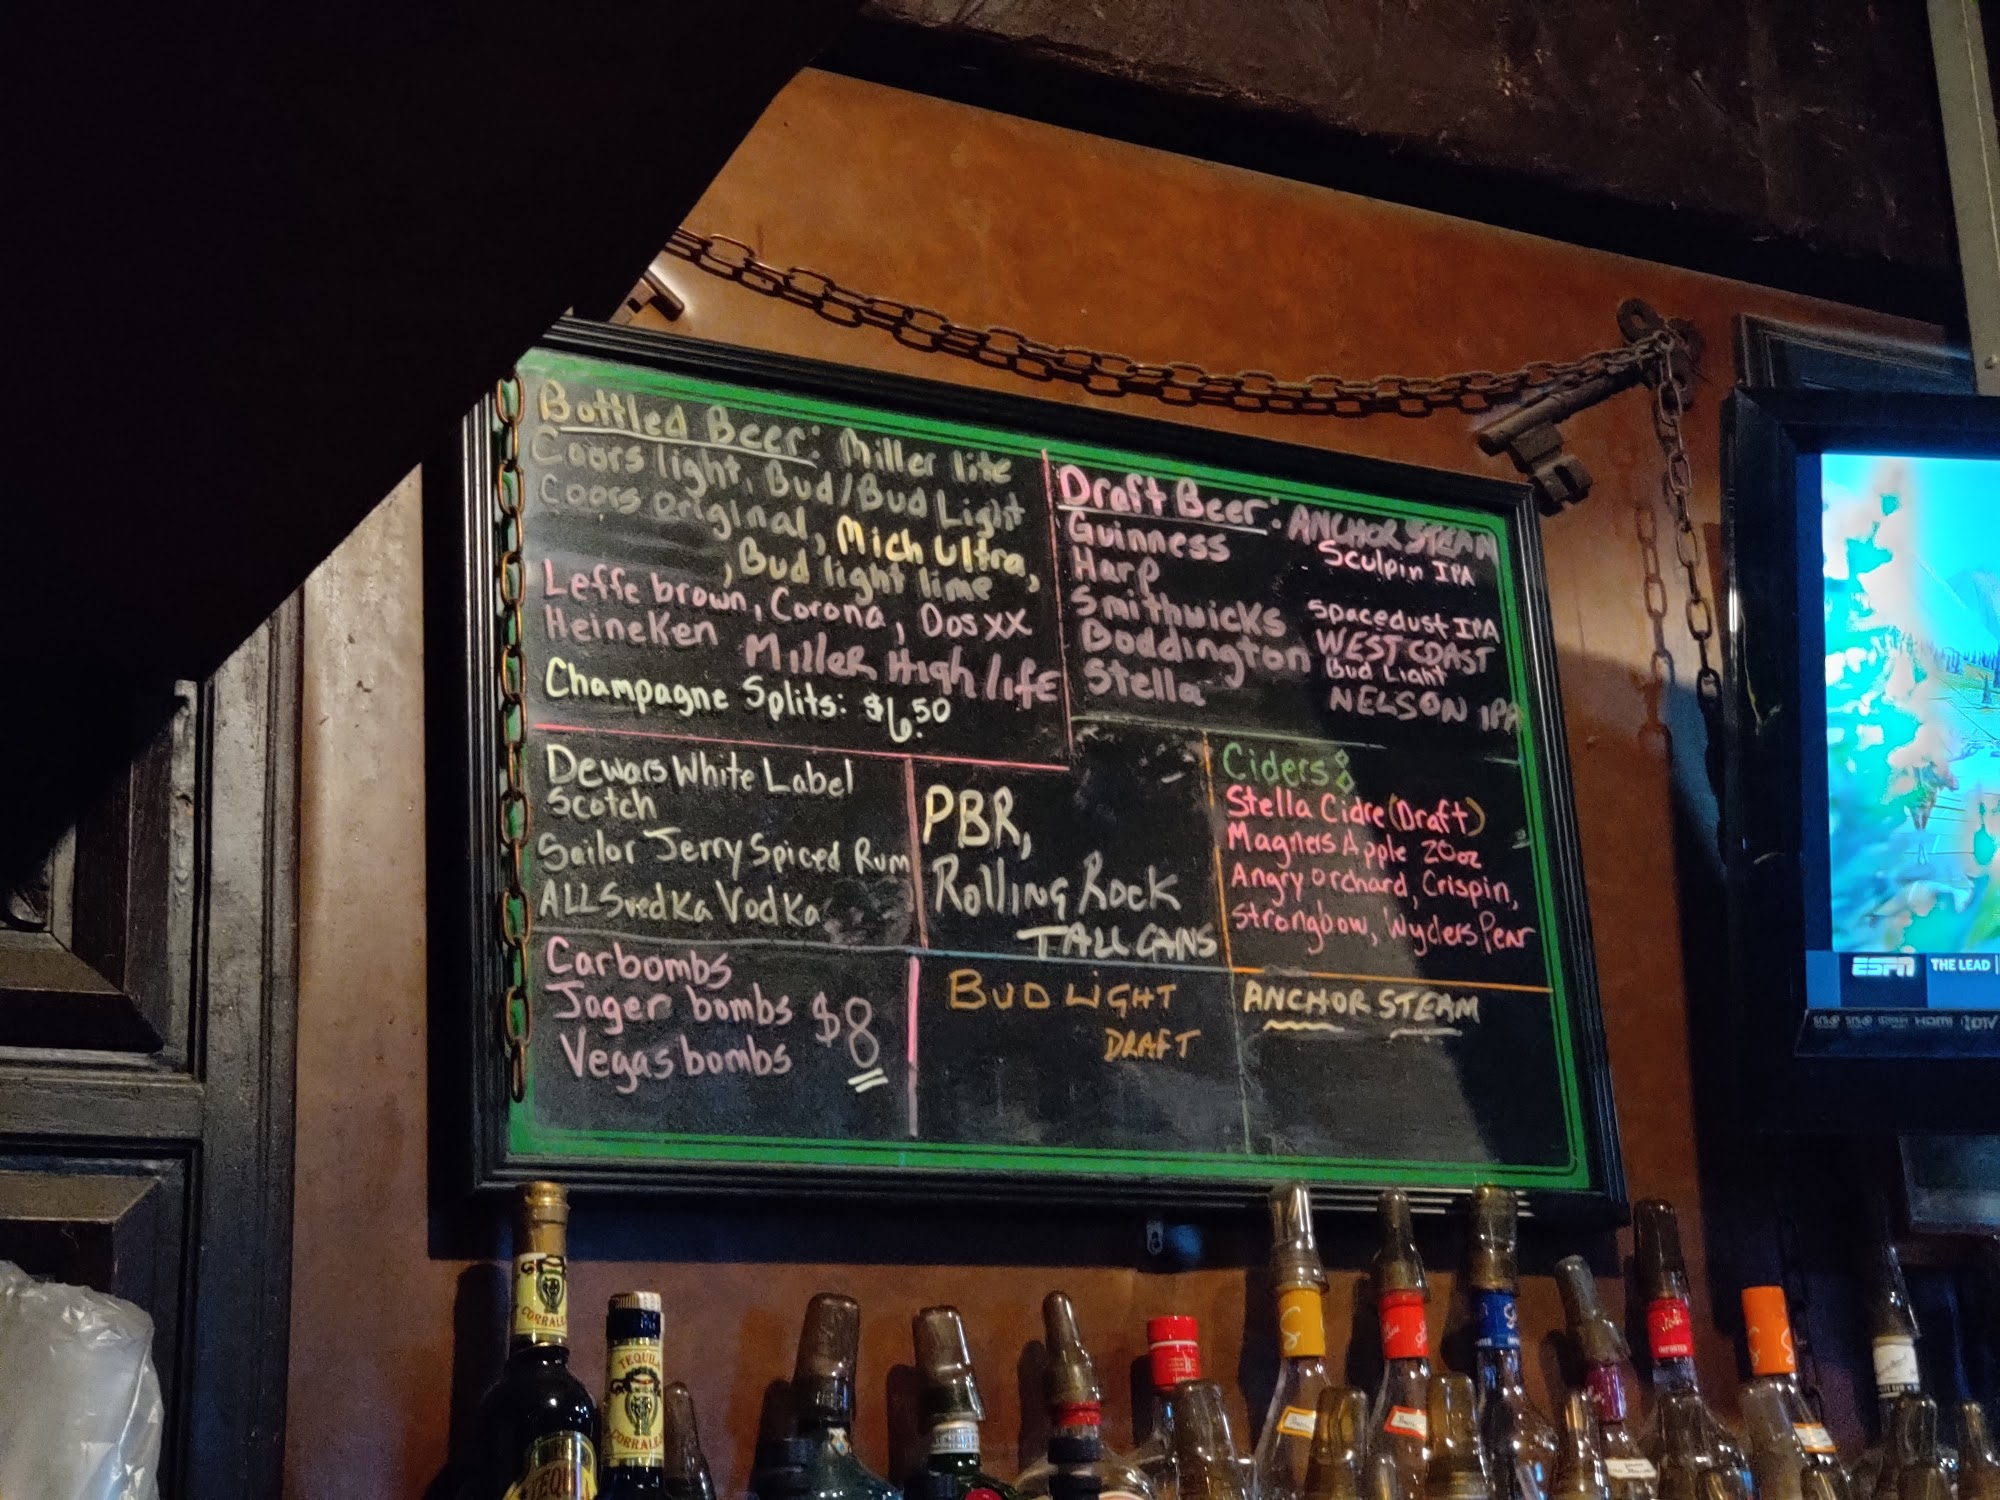 Bottled Beer: Miller lite
Coors light, Bud/Bud Light
Coors original, Mich Ultra,
, Bud light lime
Leffe brown, Corona, Dos XX
Heineken Miller High life
Champagne Splits: $6.50
Draft Beer: ANCHOR STEAM
Guinness
Sculpin IPA
Harp
Smithwicks
Spacedust IPA
Boddington
WEST COAST
Bud Light
Stella
NELSON IPA
Dewars White Label
Scotch
Sailor Jerry Spiced Rum
ALL Svedka Vodka
PBR,
Rolling Rock
TALL CANS
Ciders:
Stella Cidre (Draft)
Magners Apple 20oz
Angry orchard, Crispin,
Strongbow, Wyders Pear
Carbombs
Jager bombs $8
Vegas bombs
BUD LIGHT
DRAFT
ANCHOR STEAM
ESPN THE LEAD
HDMI
CORRALEJO
TEQUILA
CORRALEJO